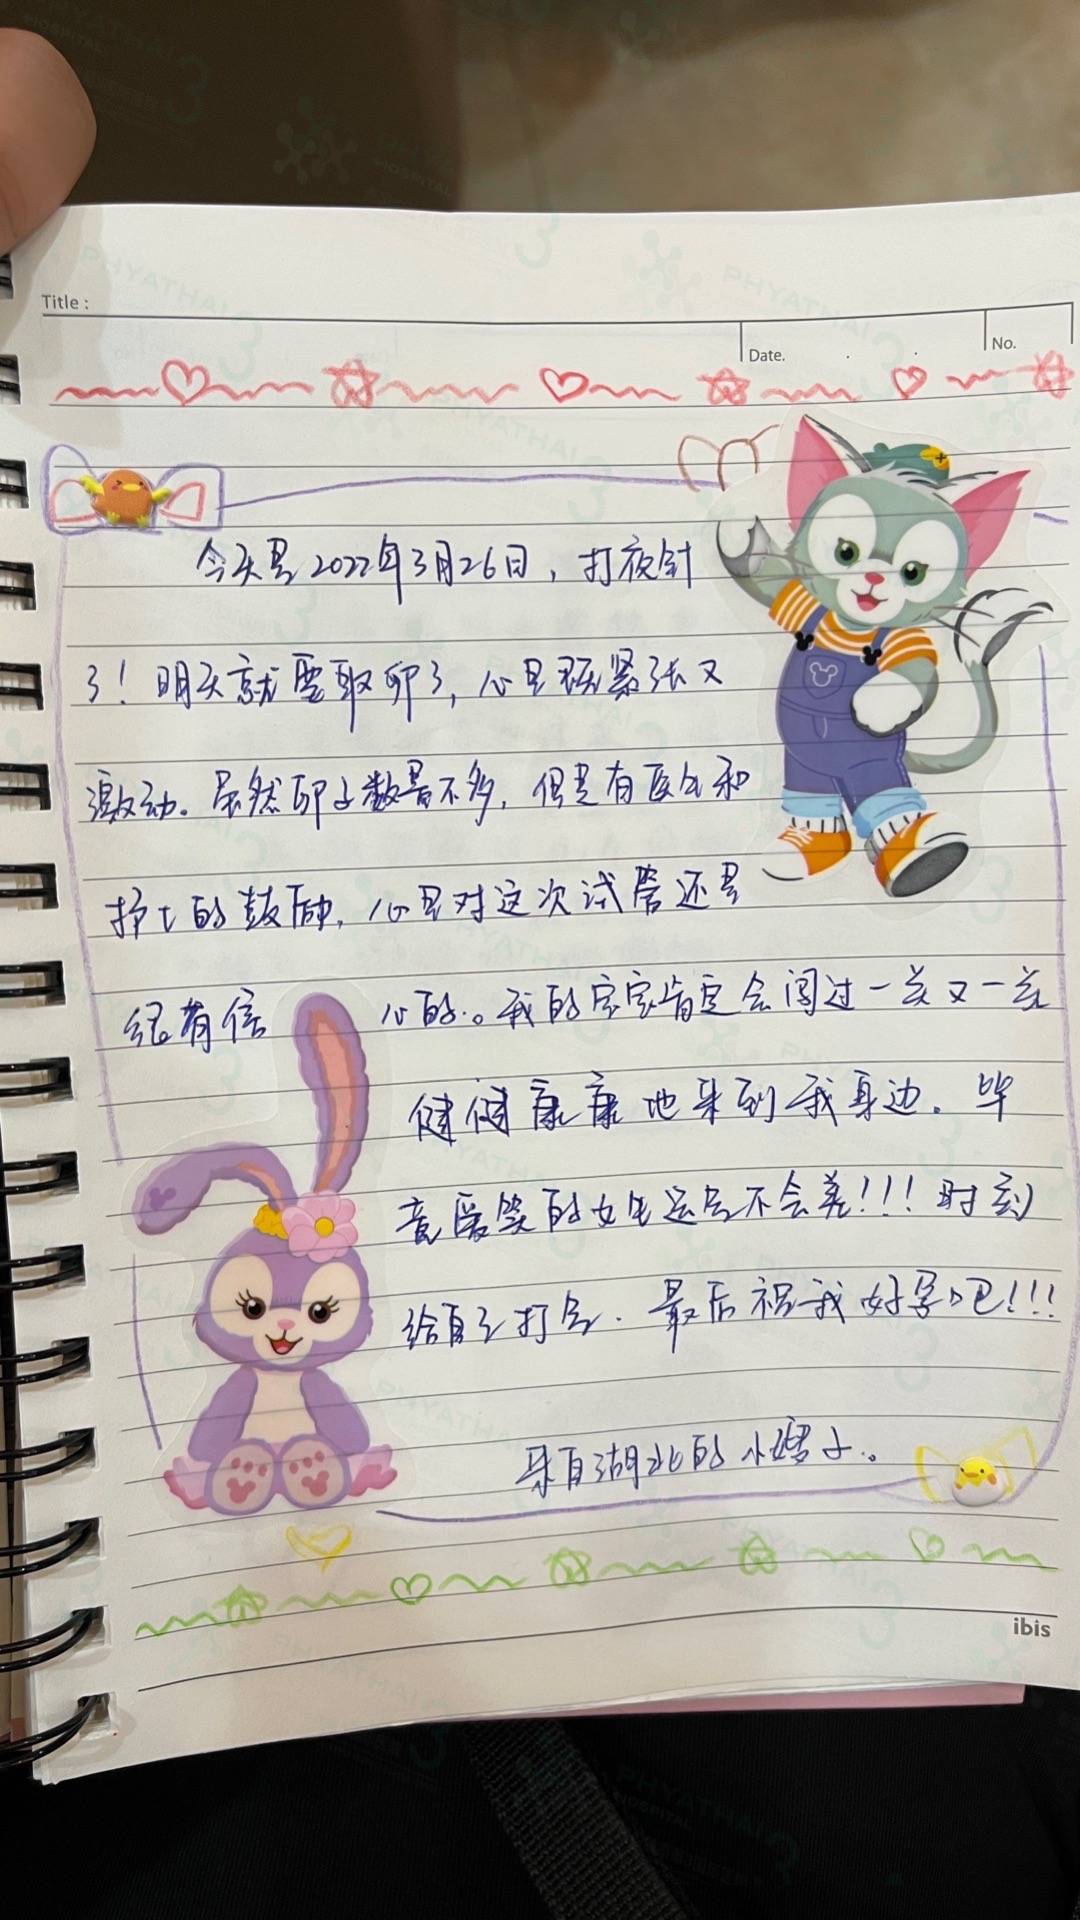 Title :
Date.
No.
今天是2022年3月26日，打夜针
了！明天就要取卵了，心里既紧张又
激动。虽然卵子数量不多，但是有医生和
护士的鼓励，心里对这次试管还是
很有信心的。我的宝宝肯定会闯过一关又一关
健健康康地来到我身边。毕
竟爱笑的女生运气不会差!!!时刻
给自己打气．最后祝我好孕吧!!!
来自湖北的小婷子。
ibis
PHYATHAI 3
HOSPITAL